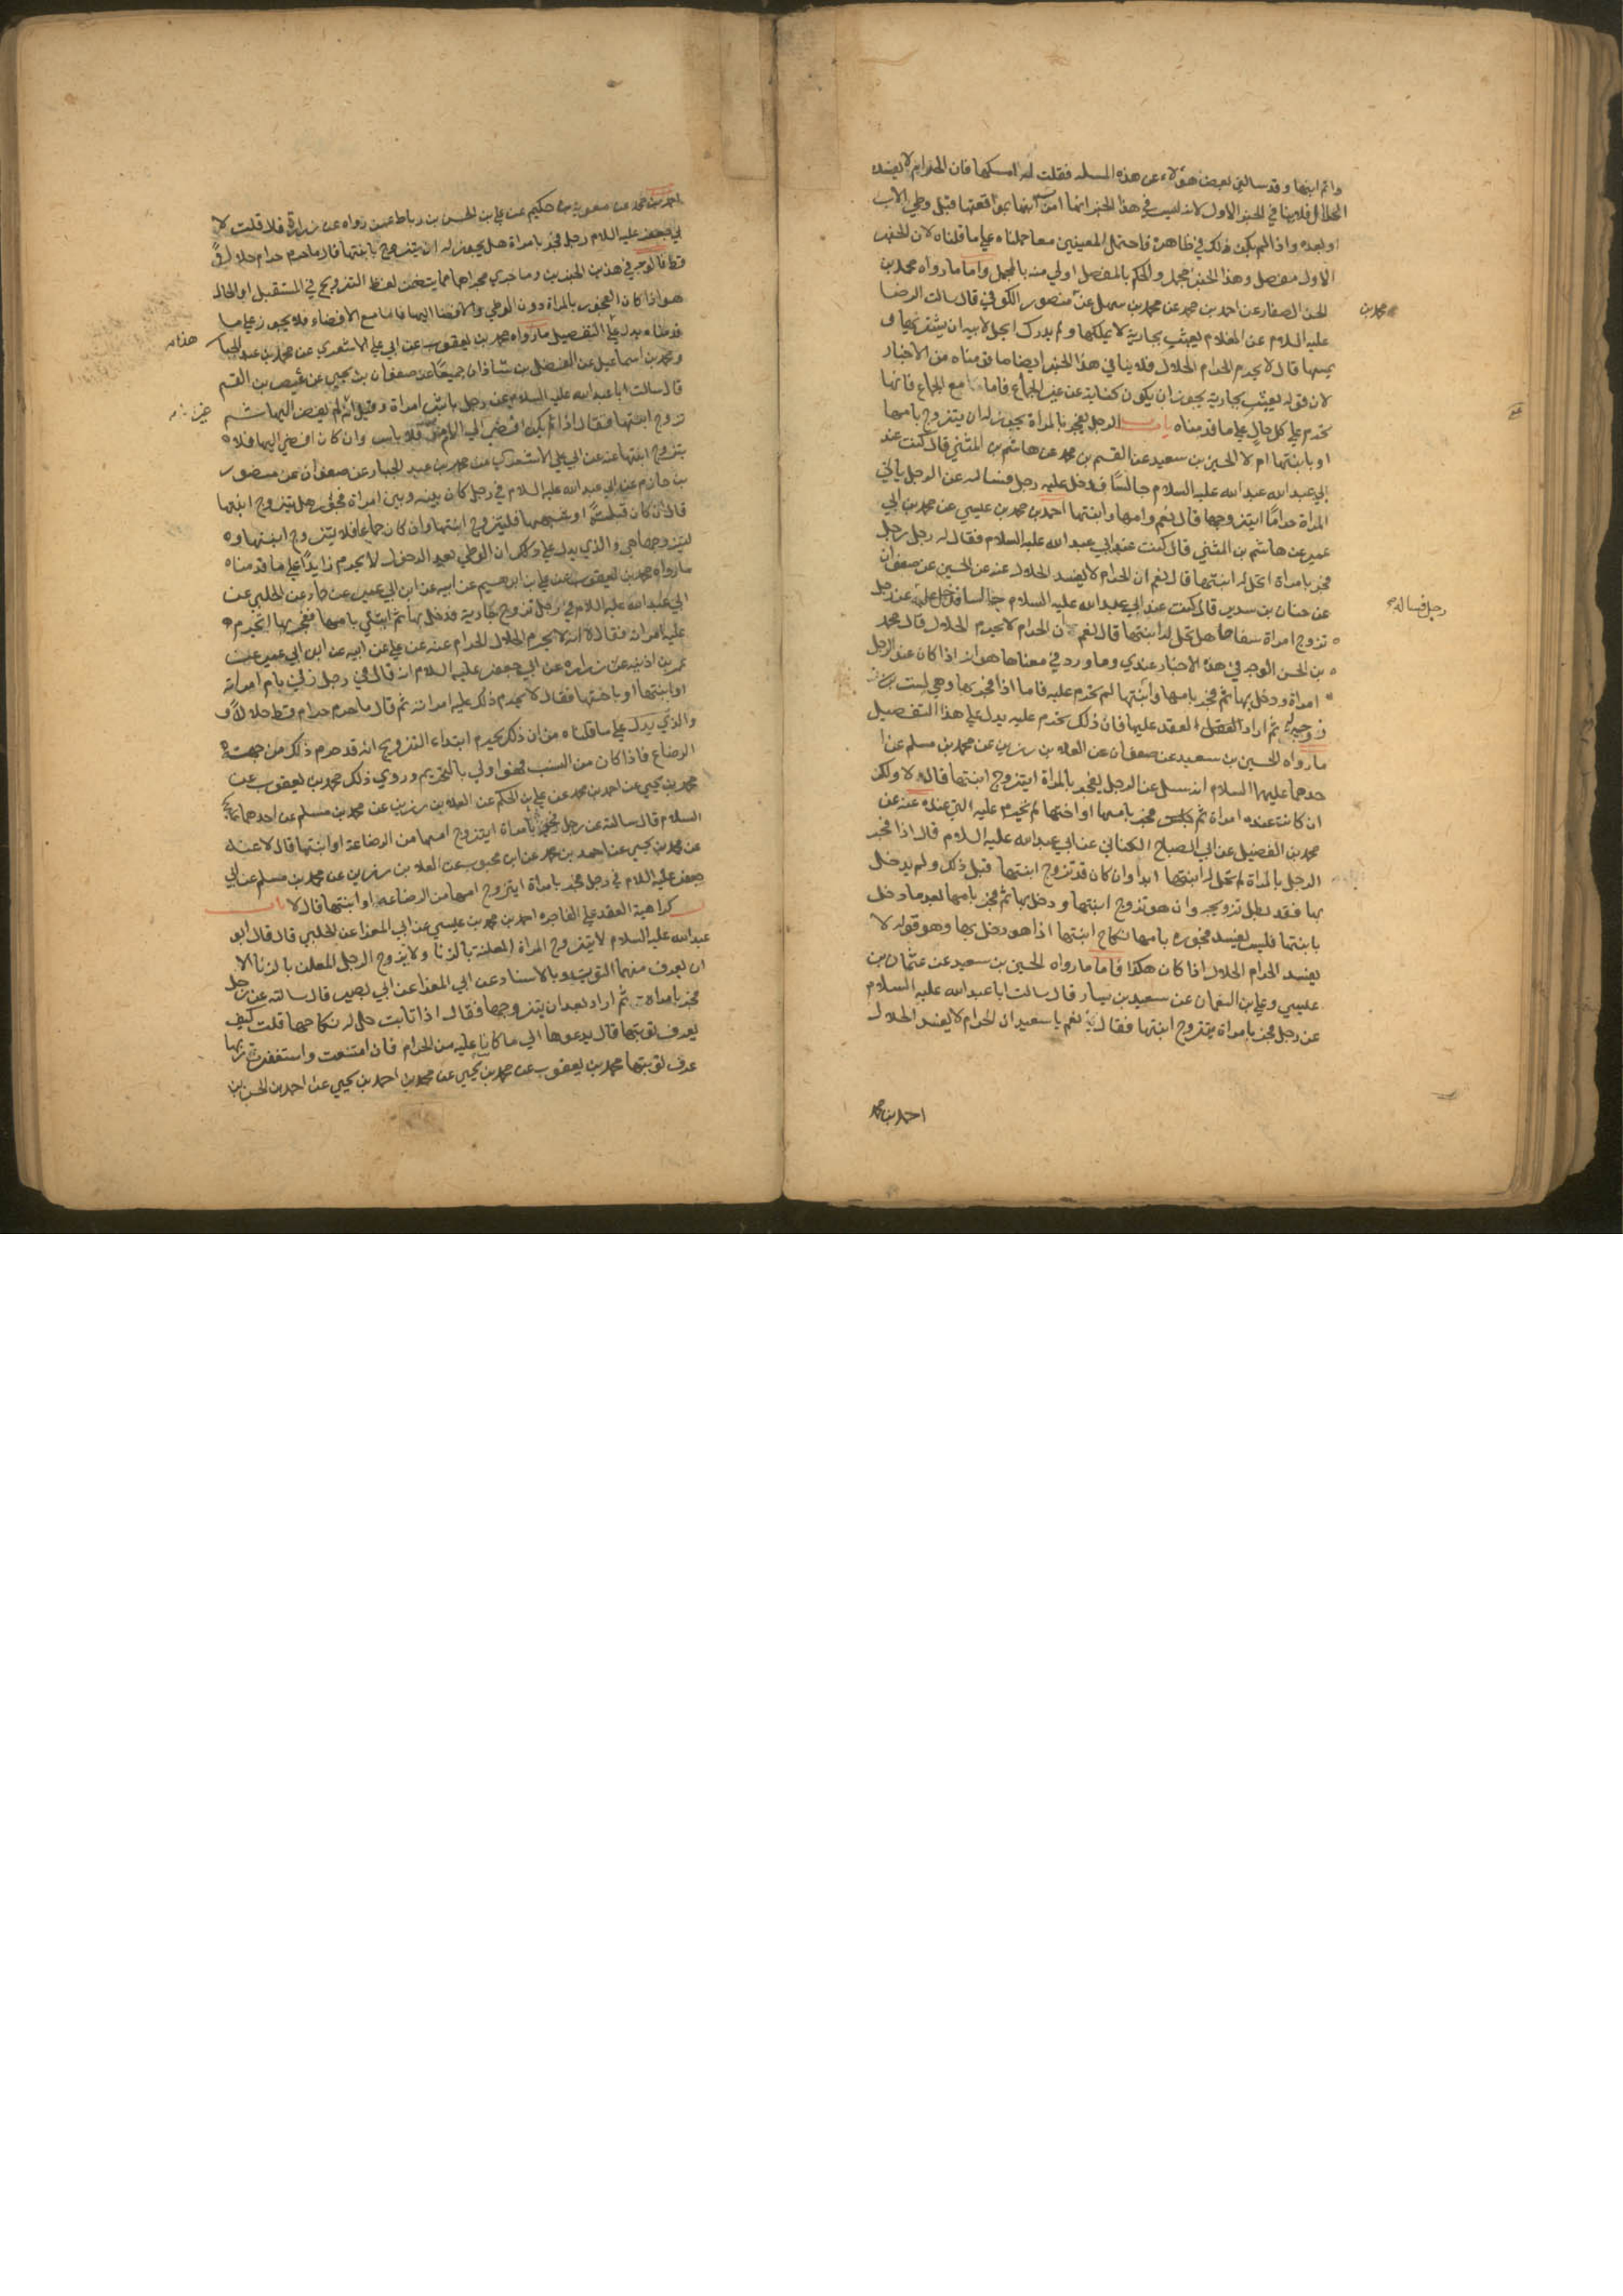 وانه ابنها وقد سالني بعض هؤلاء عن هذه المسله فقلت له امسكها فان الحرام لا يفسد
الحلال فلا ينافي الخبر الاول لانه ليس في هذا الخبر انما ابنها بمواقعتها قبل وطي الاب
او بعده واذا لم يكن ذلك في ظاهره فاحتمل المعنيين معا حملناه علي ما قلناه لان الخبر
الاول مفصل وهذا الخبر مجمل والحكم بالمفصل اولي منه بالمجمل واما ما رواه محمد بن
الحسن الصفار عن احمد بن محمد عن محمد بن سهل عن منصور الكوفي قال سالت الرضا
محمد بن
عليه السلام عن الغلام يعبث بجارية لا يملكها ولم يدرك ايحل لابيه ان يشتريها و
يمسها قال لا يحرم الحرام الحلال فلا ينافي هذا الخبر ايضا ما قدمناه من الاخبار
لان قوله يعبث بجارية يجوز ان يكون كناية عن غير الجماع فاما مع الجماع فانها
تحرم علي كل حال علي ما قدمناه باب الرجل يفجر بالمراة يجوز له ان يتزوج بامها
او بابنتها ام لا الحسين بن سعيد عن القسم بن محمد عن هاشم بن المثني قال كنت عند
ابي عبدالله عليه السلام جالسًا فدخل عليه رجل فساله عن الرجل ياتي
المراة حرامًا ايتزوجها قال نعم وامها وابنتها احمد بن محمد بن عيسي عن محمد بن ابي
عمير عن هاشم بن المثني قال كنت عند ابي عبدالله عليه السلام فقال له رجل رجل
فجر بامراة اتحل له ابنتها قال نعم ان الحرام لا يفسد الحلال عنه عن الحسين عن صفوان
عن حنان بن سدير قال كنت عند ابي عبدالله عليه السلام جالسا فدخل عليه عن رجل
رجل فساله
تزوج امراة سفاحا هل تحل له ابنتها قال نعم ان الحرام لا يحرم الحلال قال محمد
بن الحسن الوجه في هذه الاخبار عندي وما ورد في معناها هو انه اذا كان عند الرجل
امراة ودخل بها ثم فجر بامها وابنتها لم تحرم عليه فاما اذا فجر بها وهي ليست
زوجته ثم اراد العقد عليها فان ذلك يحرم عليه يدل علي هذا التفصيل
ما رواه الحسين بن سعيد عن صفوان عن العلاء بن رزين عن محمد بن مسلم عن ا
حدهما عليهما السلام انه سئل عن الرجل يفجر بالمراة ايتزوج ابنتها قال لا ولكن
ان كانت عنده امراة ثم فجر بامها او اختها لم تحرم عليه التي عنده عنه عن
محمد بن الفضيل عن ابي الصباح الكناني عن ابي عبدالله عليه السلام قال اذا فجر
الرجل بالمراة لم تحل له ابنتها ابدا وان كان قد تزوج ابنتها قبل ذلك ولم يدخل
بها فقد بطل تزويجه وان هو تزوج ابنتها ودخل بها ثم فجر بامها بعد ما دخل
بابنتها فليس يفسد فجوره بامها نكاح ابنتها اذا هو دخل بها وهو قوله لا
يفسد الحرام الحلال اذا كان هكذا فاما ما رواه الحسين بن سعيد عن عثمان بن
عيسي وعلي بن النعمان عن سعيد بن يسار قال سالت ابا عبدالله عليه السلام
عن رجل فجر بامراة يتزوج ابنتها فقال نعم يا سعيد ان الحرام لا يفسد الحلال
احمد بن محمد
احمد بن محمد عن معوية بن حكيم عن علي بن الحسن بن رباط عمن رواه عن زرارة قال قلت لا
بي جعفر عليه السلام رجل فجر بامراة هل يجوز له ان يتزوج بابنتها قال ما حرم حرام حلالا
قط فالوجه في هذين الخبرين وما جري مجراهما مما يتضمن لفظ التزويج في المستقبل او الحال
هو اذا كان الفجور بالمراة دون الوطي والافضا اليها فاما مع الافضاء فلا يجوز علي ما
قدمناه يدل علي التفصيل ما رواه محمد بن يعقوب عن ابي علي الاشعري عن محمد بن عبد الجبار
هذا
ومحمد بن اسماعيل عن الفضل بن شاذان جميعًا عن صفوان بن يحيي عن عيص بن القسم
قال سالت ابا عبدالله عليه السلام عن رجل باشر امراة وقبل انه لم يفض اليها ثم
تزوج ابنتها فقال اذا لم يكن افضي الي الام فلا باس وان كان افضي اليها فلا
يتزوج ابنتها عنه عن ابي علي الاشعري عن محمد بن عبد الجبار عن صفوان عن منصور
بن حازم عن ابي عبدالله عليه السلام في رجل كان بينه وبين امراة فجور هل يتزوج ابنتها
قال ان كان قبلة او شبهها فليتزوج ابنتها وان كان جماعا فلا يتزوج ابنتها و
ليتزوجها هي والذي يدل علي ذلك ان الوطي بعد الدخول لا يحرم زايدًا علي ما قدمناه
ما رواه محمد بن يعقوب عن علي بن ابرهيم عن ابيه عن ابن ابي عمير عن حماد عن الحلبي عن
ابي عبدالله عليه السلام في رجل تزوج جارية فدخل بها ثم ابتلي بامها ففجر بها اتحرم
عليه امراته فقال لا انه لا يحرم الحلال الحرام عنه عن علي عن ابيه عن ابن ابي عمير عن
عمر بن اذينه عن زراره عن ابي جعفر عليه السلام انه قال في رجل زني بام امراته
او ابنتها او باختها فقال لا يحرم ذلك عليه امراته ثم قال ما حرم حرام قط حلالًا و
والذي يدل علي ما قلناه من ان ذلك يحرم ابتداء التزويج انه قد حرم ذلك من جهة
الرضاع فاذا كان من النسب فهو اولي بالتحريم وروي ذلك محمد بن يعقوب عن
محمد بن يحيي عن احمد بن محمد عن علي بن الحكم عن العلاء بن رزين عن محمد بن مسلم عن احدهما عليهما
السلام قال سالته عن رجل فجر بامراة ايتزوج امها من الرضاعة او ابنتها قال لا عنه
عن محمد بن يحيي عن احمد بن محمد عن ابن محبوب عن العلا بن رزين عن محمد بن مسلم عن ابي
جعفر عليه السلام في رجل فجر بامراة ايتزوج امها من الرضاعه او ابنتها قال لا باب
كراهية العقد علي الفاجره احمد بن محمد بن عيسي عن ابي المغرا عن الحلبي قال قال ابو
عبدالله عليه السلام لا يتزوج المراة المعلنة بالزنا ولا يزوج الرجل المعلن بالزنا الا
ان يعرف منهما التوبة وبالاسناد عن ابي المغرا عن ابي بصير قال سالته عن رجل
فجر بامراة ثم اراد بعد ان يتزوجها فقال اذا تابت حل له نكاحها قلت كيف
يعرف توبتها قال يدعوها الي ما كانا عليه من الحرام فان امتنعت واستغفرت ربها
عرف توبتها محمد بن يعقوب عن محمد بن يحيي عن محمد بن احمد بن يحيي عن احمد بن الحسن بن